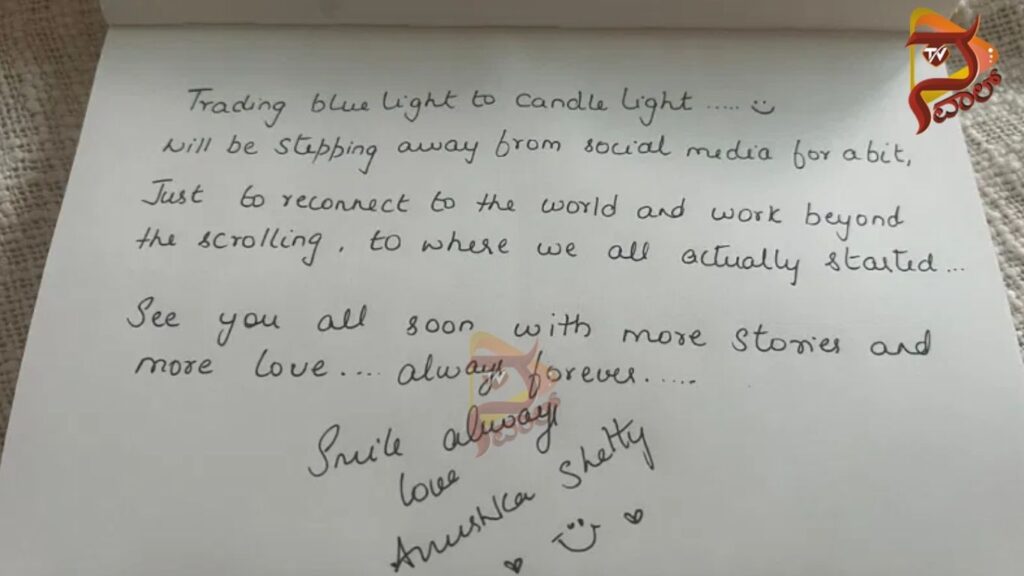 TV
ವಾಲ್
Trading blue light to candle light ..... :)
will be stepping away from social media for a bit,
Just to reconnect to the world and work beyond
the scrolling, to where we all actually started...
See you all soon with more stories and
more love.... always forever.....
Smile always
love
Anushka Shetty